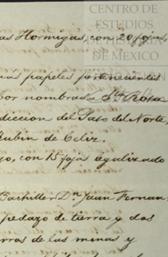 CENTRO DE
ESTUDIOS
DE MEXICO
as Hormigas, con 20 fojas
papeles pertenecientes
por nombre Sta Rosa
diccion del Paso del Norte,
Rubin de Celiz.
go, con 15 fojas
Bachiller Dn Juan Fernan
pedazo de tierra y dos
rras de las minas y